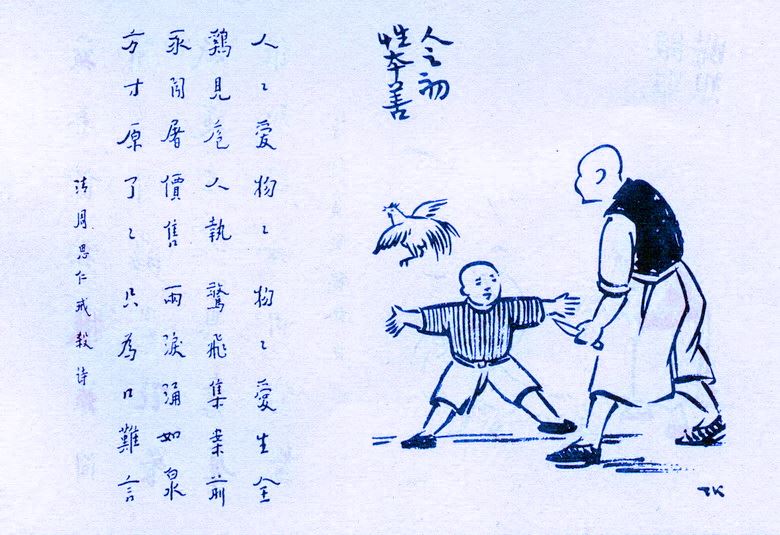 人之初
性本善
人〻愛物〻 物〻愛生全
鷄見庖人執 驚飛集案前
豕聞屠價售 兩淚湧如泉
方寸原了〻 只為口難言
清周思仁戒殺詩
TK